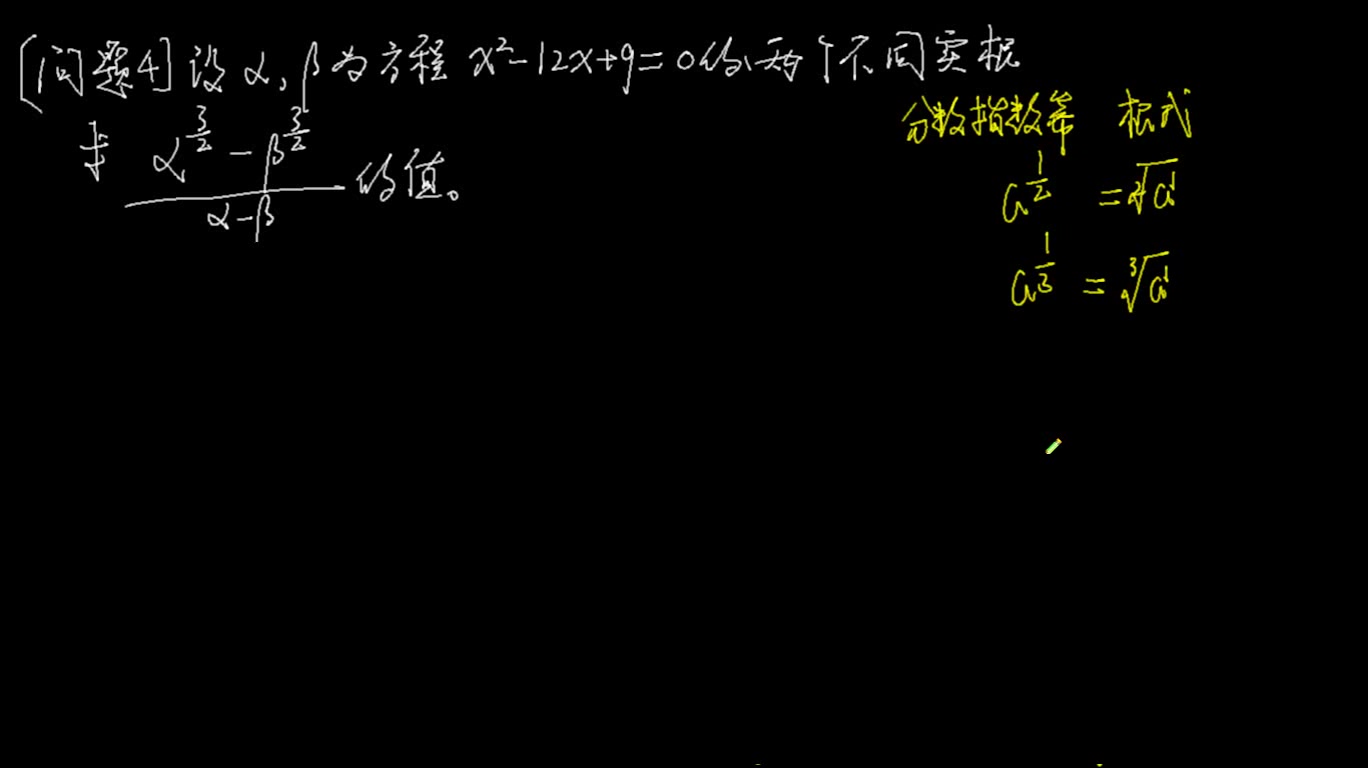 [问题4] 设 α, β 为方程 x²-12x+9=0 的两个不同实根
求 (α^{3/2} - β^{3/2})/(α-β) 的值。
分数指数幂 根式
a^{1/2} = ²√a¹
a^{1/3} = ³√a¹